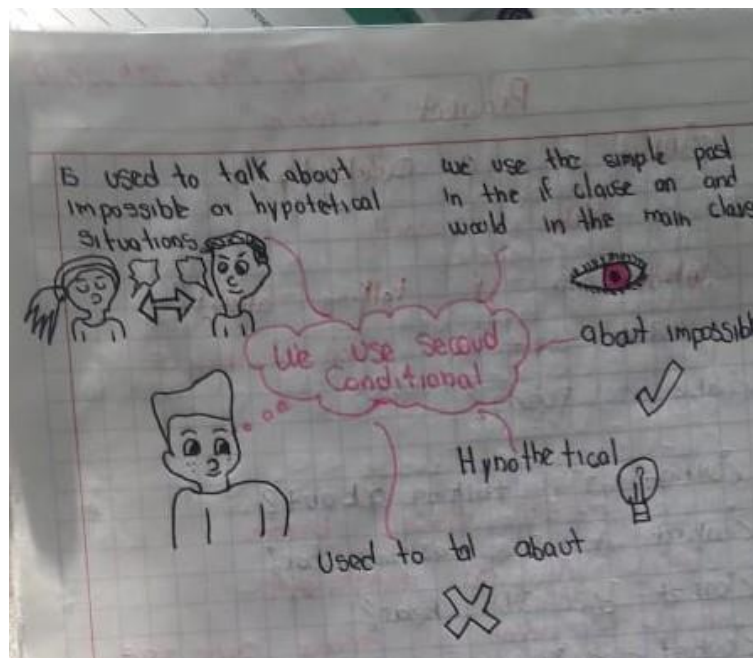 Is used to talk about
impossible or hypotetical
situations
we use the simple past
in the if clause an and
would in the main claus
We use second
Conditional
about impossibl
Hypothetical
Used to tal abaut